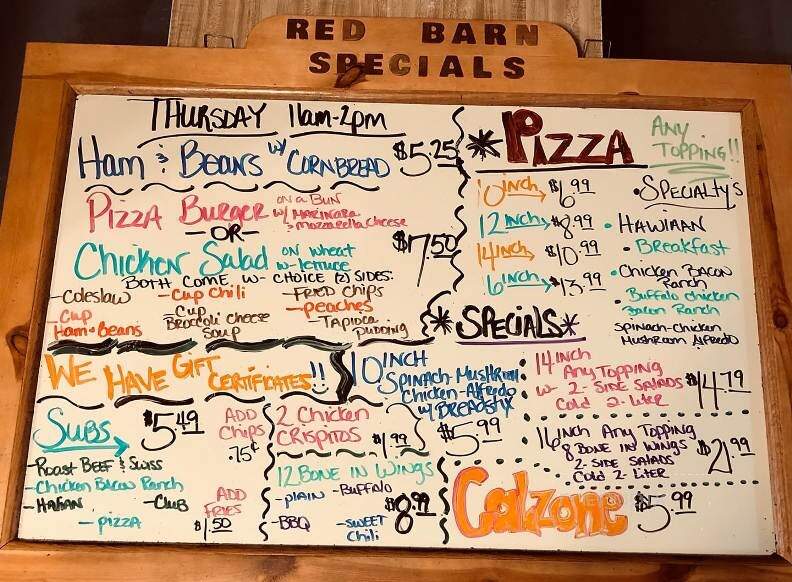 RED BARN
SPECIALS
THURSDAY 11am-2pm
Ham & Beans w/ CORNBREAD $5.25
Pizza Burger ON a BUN
w/ MARINARA
& Mozzarella Cheese
-OR-
Chicken Salad ON wheat
w- lettuce
$7.50
BOTH COME W- CHOICE (2) SIDES:
-Coleslaw
-Cup Chili
-FRIED Chips
-Cup
Ham & Beans
-Cup
Broccoli Cheese
Soup
-peaches
-Tapioca
Pudding
WE HAVE GIFT
CERTIFICATES!!
SUBS $5.49
-ROAST BEEF & SWISS
-Chicken Bacon Ranch
-Italian
-Club
-pizza
ADD
Chips
.75¢
ADD
FRIES
$1.50
2 Chicken
CRISPITOS $1.99
12 BONE IN WINGS
-plain
-Buffalo
-BBQ
-SWEET
Chili
$8.99
10 INCH
SPINACH-MUSHROOM
Chicken-Alfredo
w/ BREADSTIX
$5.99
*PIZZA
ANY
TOPPING!!
10 inch $6.99
12 inch $8.99
14 inch $10.99
16 inch $13.99
•SPECIALTYS
• HAWIIAN
• Breakfast
• Chicken BACON
Ranch
• Buffalo chicken
Bacon Ranch
SPINACH-CHICKEN
MUSHROOM Alfredo
*SPECIALS*
14 INCH
Any TOPPING
w- 2-SIDE SALADS
Cold 2-liter
$14.79
16 inch Any TOPPING
8 BONE IN WINGS
2-SIDE SALADS
Cold 2-LITER
$21.99
Calzone $5.99